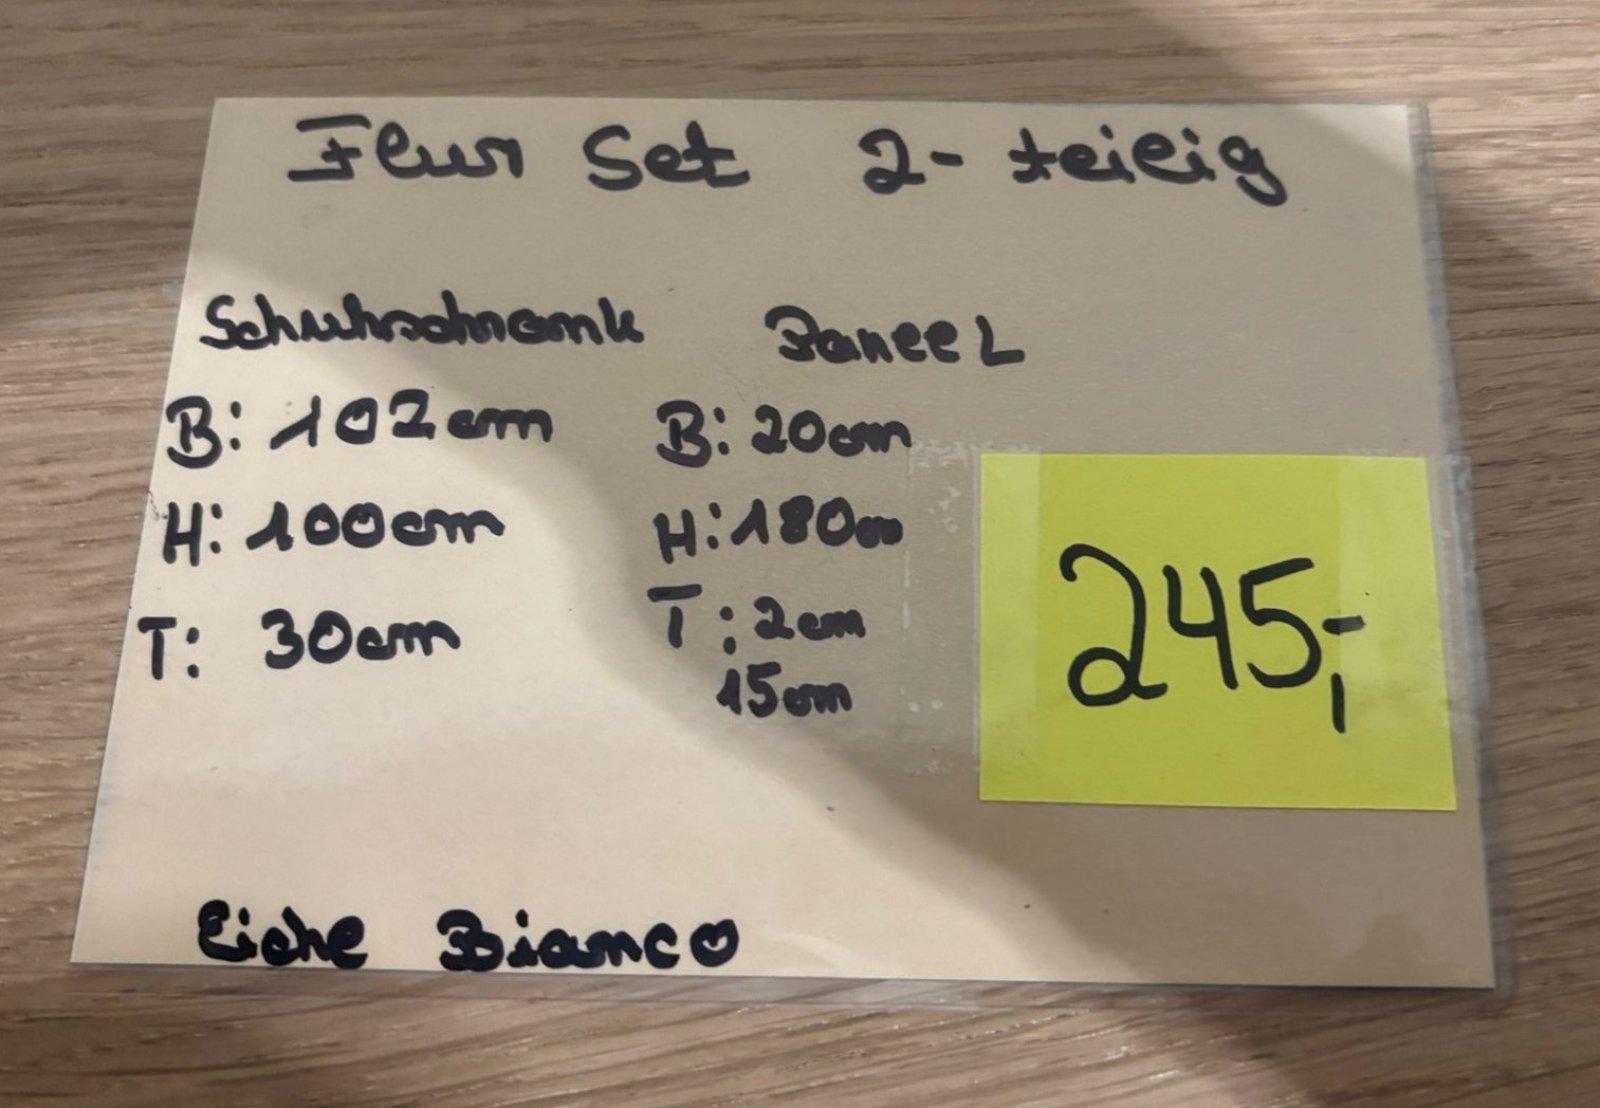 Flur Set 2-teilig
Schuhschrank Paneel
B: 102cm B: 20cm
H: 100cm H: 180cm
T: 30cm T: 2cm
15cm
245,-
Eiche Bianco